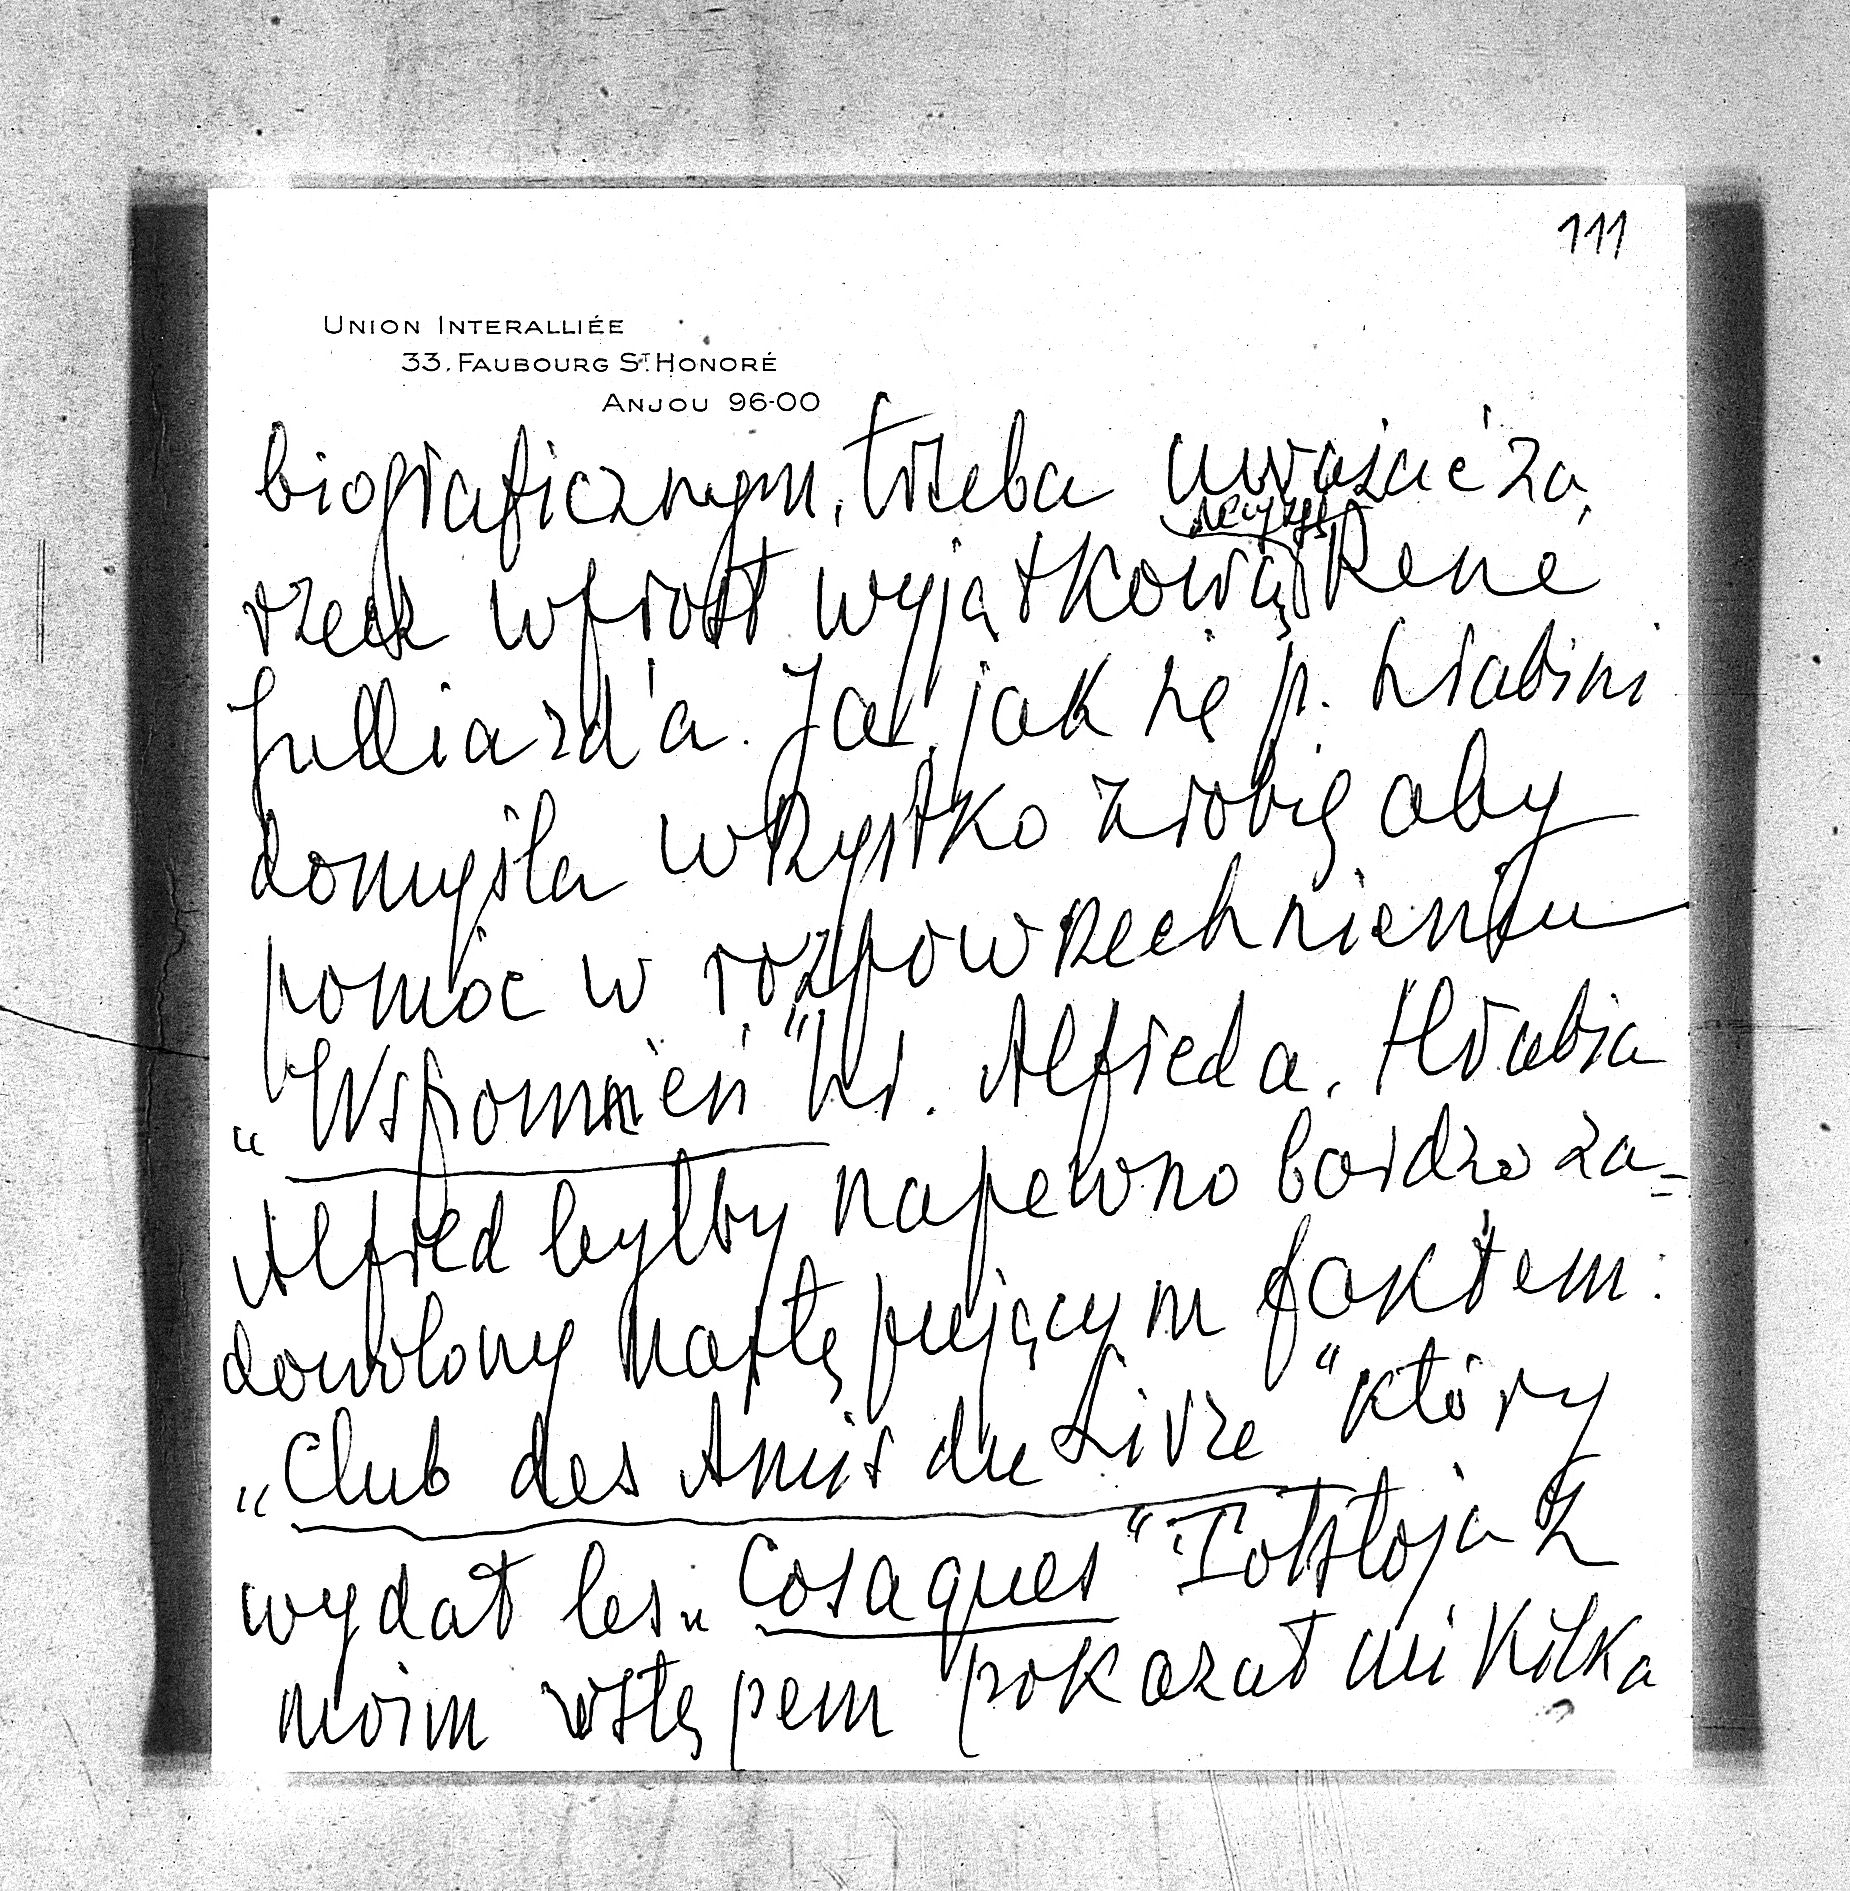 111
UNION INTERALLIÉE
33. FAUBOURG ST. HONORÉ
ANJOU 96-00
biograficznym, trzeba uważać za,
decyzję
rzecz wprost wyjątkową René
Julliard'a. Ja, jak się p. hrabini
domyśla wszystko zrobię aby
pomóc w rozpowszechnieniu
„Wspomnień" hr. Alfreda. Hrabia
Alfred byłby napewno bardzo za=
dowolony następującym faktem:
„Club des Amis du Livre" który
wydał les „Cosaques" Tołstoja z
moim wstępem pokazał mi kilka